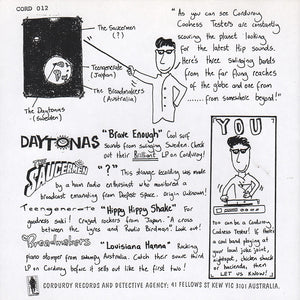 CORD 012
The Saucermen
(?)
Teengenerate
(Japan)
The Breadmakers
(Australia)
The Daytonas
(Sweden)
" As you can see Corduroy
Coolness Testers are constantly
scouring the planet looking
for the latest Hip sounds.
Here's three swinging bands
from the far flung reaches
of the globe and one from
.......from somewhere beyond!"
DAYTONAS "Brave Enough" Cool surf
sounds from swinging Sweden. Check
out their Brilliant LP on Corduroy!
THE SAUCERMEN "?" This strange recording was made
by a ham radio enthusiast who monitored a
broadcast emanating from Deepest Space. Origin unknown!
Teengenerate "Hippy Hippy Shake" For
goodness saki! Crazed rockers from Japan. "A cross
between the Lyres and Radio Birdman." Look out!
Breadmakers "Louisiana Hanna" Rocking
piano stomper from suburban Australia. Catch their sonic third
LP on Corduroy before it sells out like the first two!
YOU
You can be a Corduroy
Coolness Tester! If there's
a cool band playing at
your local juke joint,
chicken shack
or hacienda, then
LET US KNOW!
CORDUROY RECORDS AND DETECTIVE AGENCY: 41 FELLOWS ST KEW VIC 3101 AUSTRALIA.